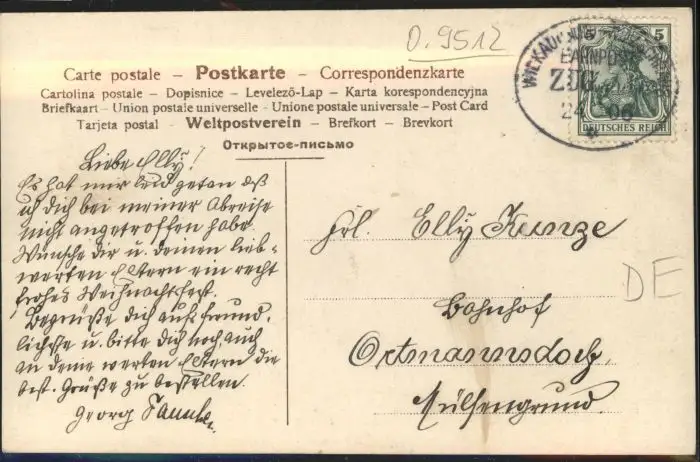 O.9512
Carte postale – Postkarte – Correspondenzkarte
Cartolina postale – Dopisnice – Levelező-Lap – Karta korespondencyjna
Briefkaart – Union postale universelle – Unione postale universale – Post Card
Tarjeta postal – Weltpostverein – Brefkort – Brevkort
Открытое-письмо
5 5
DEUTSCHES REICH
BAHNPOST
ZUG
24 06
Liebe Elly!
Es hat mir leid getan daß
ich dich bei meiner Abreise
nicht angetroffen habe.
Wünsche dir u. deinen lieb-
werten Eltern ein recht
frohes Weihnachtsfest.
Begrüße dich aufs freund-
lichste u. bitte dich noch, auch
an deine werten Eltern die
best. Grüße zu bestellen.
Georg
Frl. Elly Kunze
Bahnhof
Ortmannsdorf,
Mülsengrund.
DE